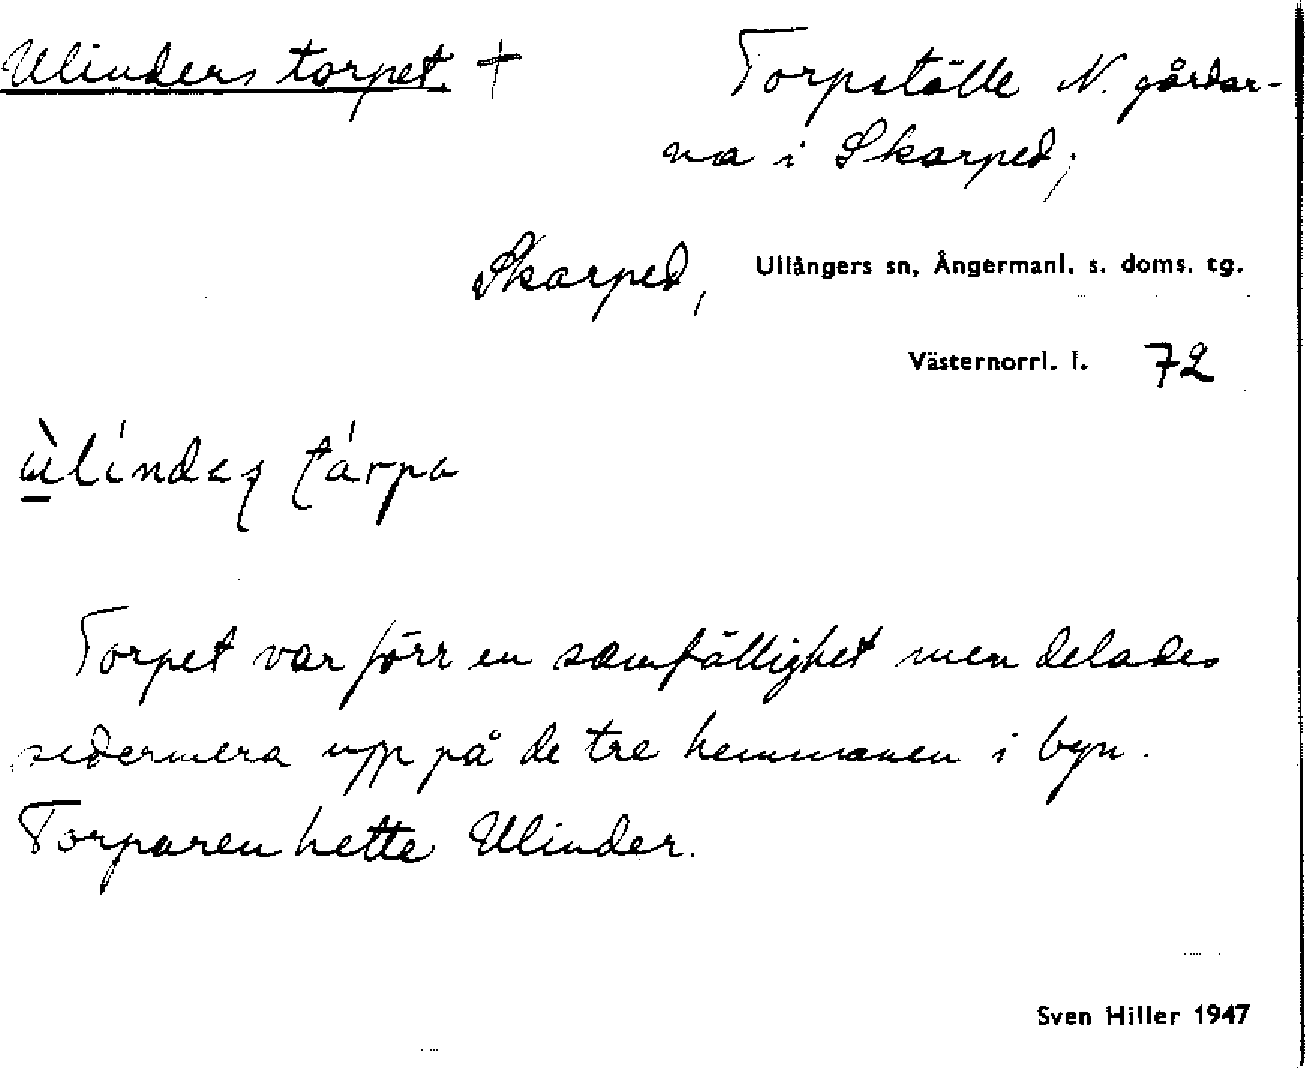 Ulinders torpet. + Torpställe N. gårdar-
na i Skarped,
Skarped, Ullångers sn, Ångermanl. s. doms. tg.
Västernorrl. l. 72
Torpet var förr en samfällighet men delades
sedermera upp på de tre hemmanen i byn.
Torparen hette Ulinder.
Sven Hiller 1947